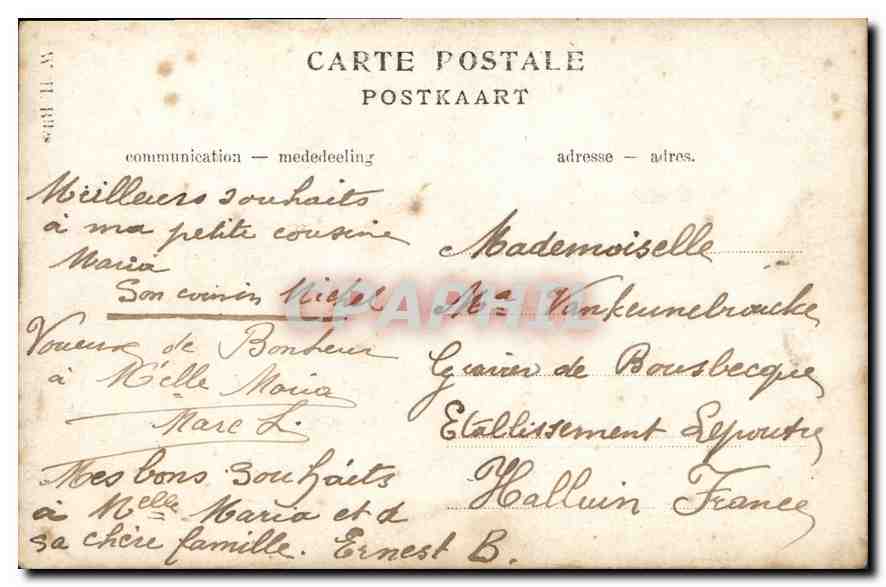 CARTE POSTALE
POSTKAART
communication — mededeeling
adresse — adres.
Meilleurs souhaits
à ma petite cousine
Maria
Son cousin Michel
Voeux de Bonheur
à M'elle Maria
Marc L.
Mes bons souhaits
à Melle Maria et à
sa chère famille. Ernest B.
Mademoiselle
Ma Vankeunebroucke
de Bousbecque
Etablissement Lepoutre
Halluin France
CPAPHIL